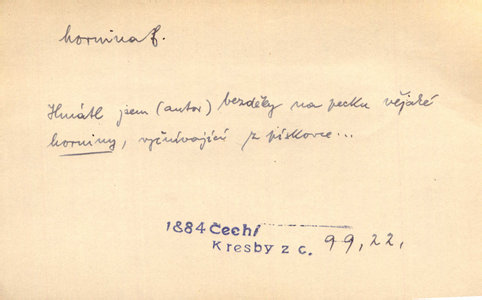 hornina f.
Hmátl jsem (autor) bezděky na pecku nějaké
horniny, vyčnívající z pískovce...
1884 Čech/
Kresby z c. 99, 22,